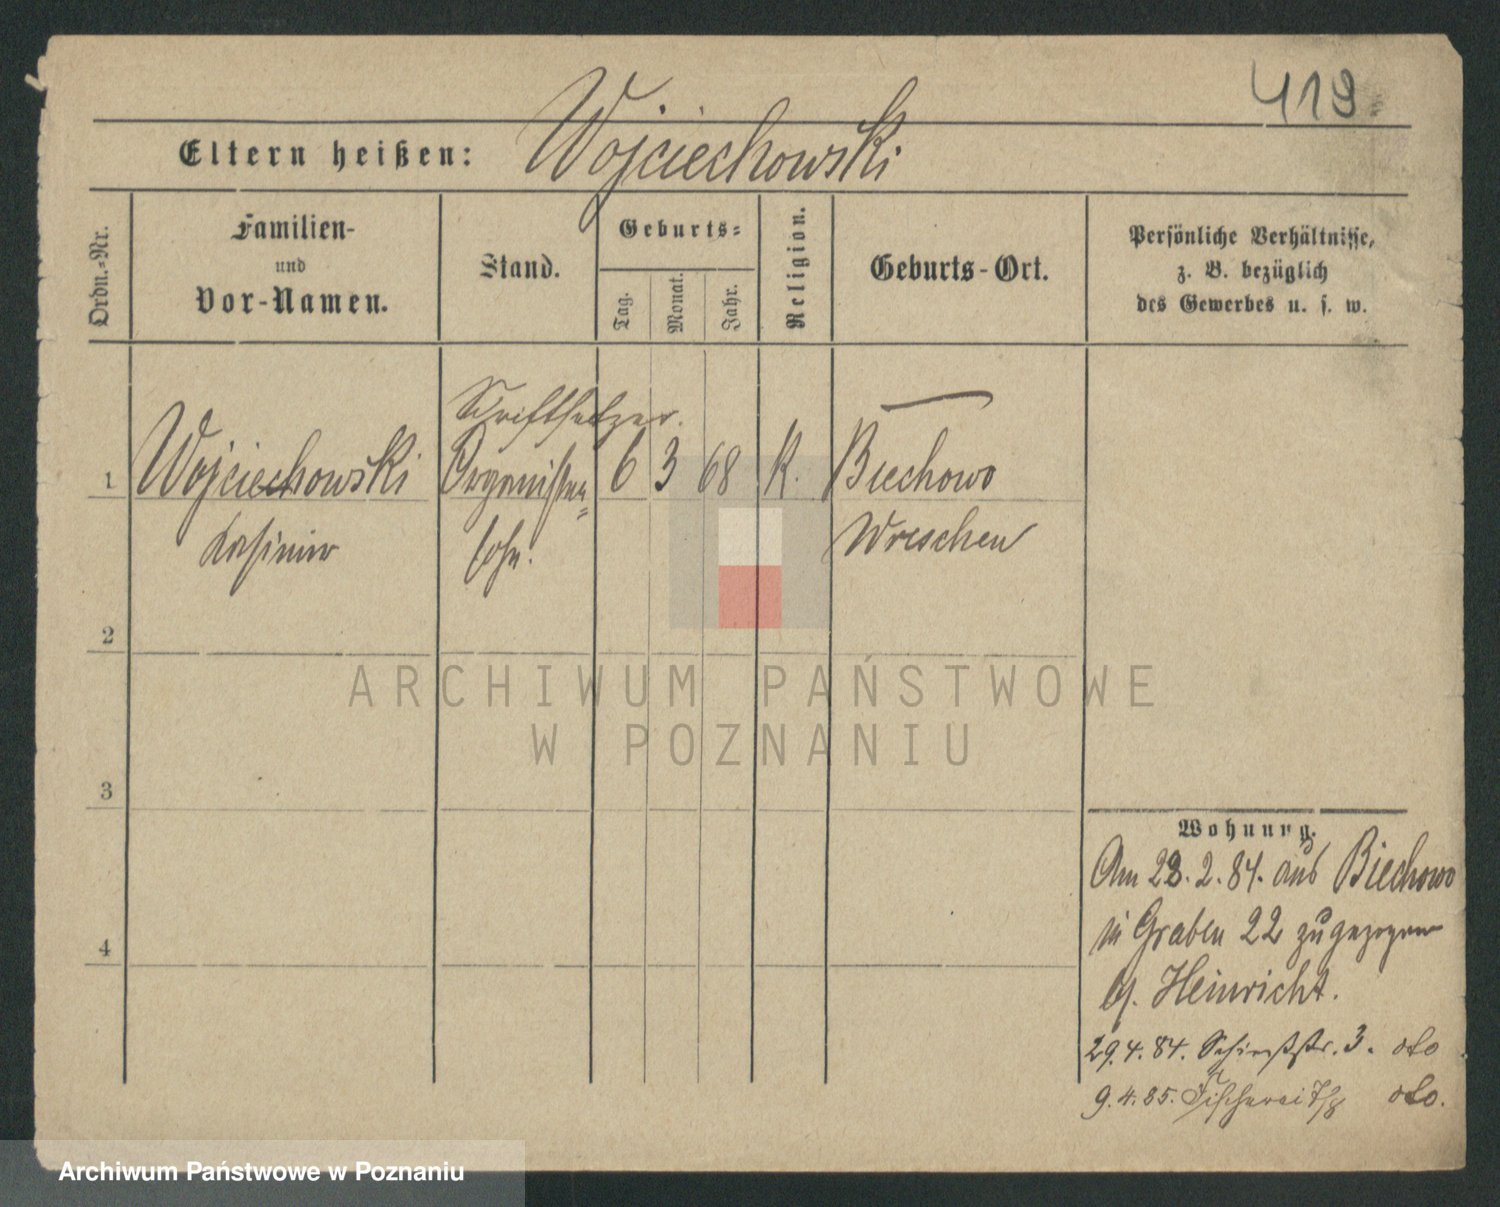 419
Eltern heißen: Wojciechowski
Ordn.-Nr.
Familien-
und
Vor-Namen.
Stand.
Geburts-
Tag.
Monat.
Jahr.
Religion.
Geburts-Ort.
Persönliche Verhältnisse,
z. B. bezüglich
des Gewerbes u. s. w.
Schriftsetzer.
1 Wojciechowski Organisten= 6 3 68 K. Biechowo
Kasimir sohn. Wreschen
2
3
4
ARCHIWUM PAŃSTWOWE
W POZNANIU
Wohnung.
Am 23.2.84. aus Biechowo
in Graben 22 zugezogen
bei Heinricht.
29.4.84. 3.
9.4.85. Fischerei 7/8
Archiwum Państwowe w Poznaniu